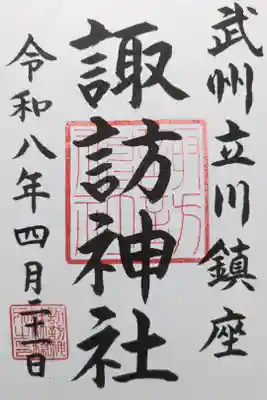 武州立川鎮座
諏訪神社
令和八年四月二十一日